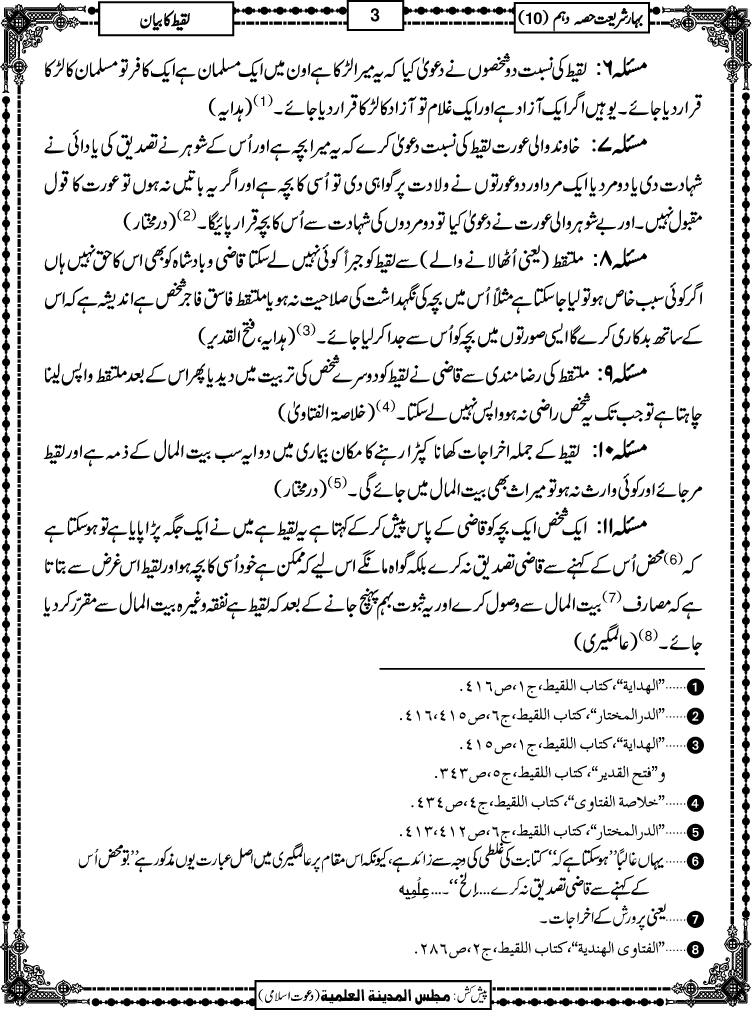 بہارشریعت حصہ دہم (10)
3
لقیط کا بیان
مسئلہ ۶: لقیط کی نسبت دو شخصوں نے دعویٰ کیا کہ یہ میرا لڑکا ہے اون میں ایک مسلمان ہے ایک کافر تو مسلمان کا لڑکا
قرار دیا جائے۔ یوہیں اگر ایک آزاد ہے اور ایک غلام تو آزاد کا لڑکا قرار دیا جائے۔(1) (ہدایہ)
مسئلہ ۷: خاوند والی عورت لقیط کی نسبت دعویٰ کرے کہ یہ میرا بچہ ہے اور اُس کے شوہر نے تصدیق کی یا دائی نے
شہادت دی یا دو مرد یا ایک مرد اور دو عورتوں نے ولادت پر گواہی دی تو اُسی کا بچہ ہے اور اگر یہ باتیں نہ ہوں تو عورت کا قول
مقبول نہیں۔ اور بے شوہر والی عورت نے دعویٰ کیا تو دو مردوں کی شہادت سے اُس کا بچہ قرار پائیگا۔(2) (درمختار)
مسئلہ ۸: ملتقط (یعنی اُٹھا لانے والے) سے لقیط کو جبراً کوئی نہیں لے سکتا قاضی و بادشاہ کو بھی اس کا حق نہیں ہاں
اگر کوئی سبب خاص ہو تو لیا جاسکتا ہے مثلاً اُس میں بچہ کی نگہداشت کی صلاحیت نہ ہو یا ملتقط فاسق فاجر شخص ہے اندیشہ ہے کہ اس
کے ساتھ بدکاری کرے گا ایسی صورتوں میں بچہ کو اُس سے جدا کر لیا جائے۔(3) (ہدایہ، فتح القدیر)
مسئلہ ۹: ملتقط کی رضا مندی سے قاضی نے لقیط کو دوسرے شخص کی تربیت میں دیدیا پھر اس کے بعد ملتقط واپس لینا
چاہتا ہے تو جب تک یہ شخص راضی نہ ہو واپس نہیں لے سکتا۔(4) (خلاصۃ الفتاویٰ)
مسئلہ ۱۰: لقیط کے جملہ اخراجات کھانا کپڑا رہنے کا مکان بیماری میں دوا یہ سب بیت المال کے ذمہ ہے اور لقیط
مر جائے اور کوئی وارث نہ ہو تو میراث بھی بیت المال میں جائے گی۔(5) (درمختار)
مسئلہ ۱۱: ایک شخص ایک بچہ کو قاضی کے پاس پیش کر کے کہتا ہے یہ لقیط ہے میں نے ایک جگہ پڑا پایا ہے تو ہوسکتا ہے
کہ(6) محض اُس کے کہنے سے قاضی تصدیق نہ کرے بلکہ گواہ مانگے اس لیے کہ ممکن ہے خود اُسی کا بچہ ہو اور لقیط اس غرض سے بتاتا
ہے کہ مصارف(7) بیت المال سے وصول کرے اور یہ ثبوت بہم پہنچ جانے کے بعد کہ لقیط ہے نفقہ وغیرہ بیت المال سے مقرّر کر دیا
جائے۔(8) (عالمگیری)
1......"الهداية"، كتاب اللقيط، ج١، ص٤١٦.
2......"الدرالمختار"، كتاب اللقيط، ج٦، ص٤١٥، ٤١٦.
3......"الهداية"، كتاب اللقيط، ج١، ص٤١٥.
و"فتح القدير"، كتاب اللقيط، ج٥، ص٣٤٣.
4......"خلاصة الفتاوى"، كتاب اللقيط، ج٤، ص٤٣٤.
5......"الدرالمختار"، كتاب اللقيط، ج٦، ص٤١٢، ٤١٣.
6......یہاں غالباً "ہوسکتا ہے کہ" کتابت کی غلطی کی وجہ سے زائد ہے، کیونکہ اس مقام پر عالمگیری میں اصل عبارت یوں مذکور ہے "تو محض اُس
کے کہنے سے قاضی تصدیق نہ کرے ...الخ"۔... عِلْمِیه
7......یعنی پرورش کے اخراجات۔
8......"الفتاوى الهندية"، كتاب اللقيط، ج٢، ص٢٨٦.
پیش کش: مجلس المدینۃ العلمیۃ (دعوت اسلامی)